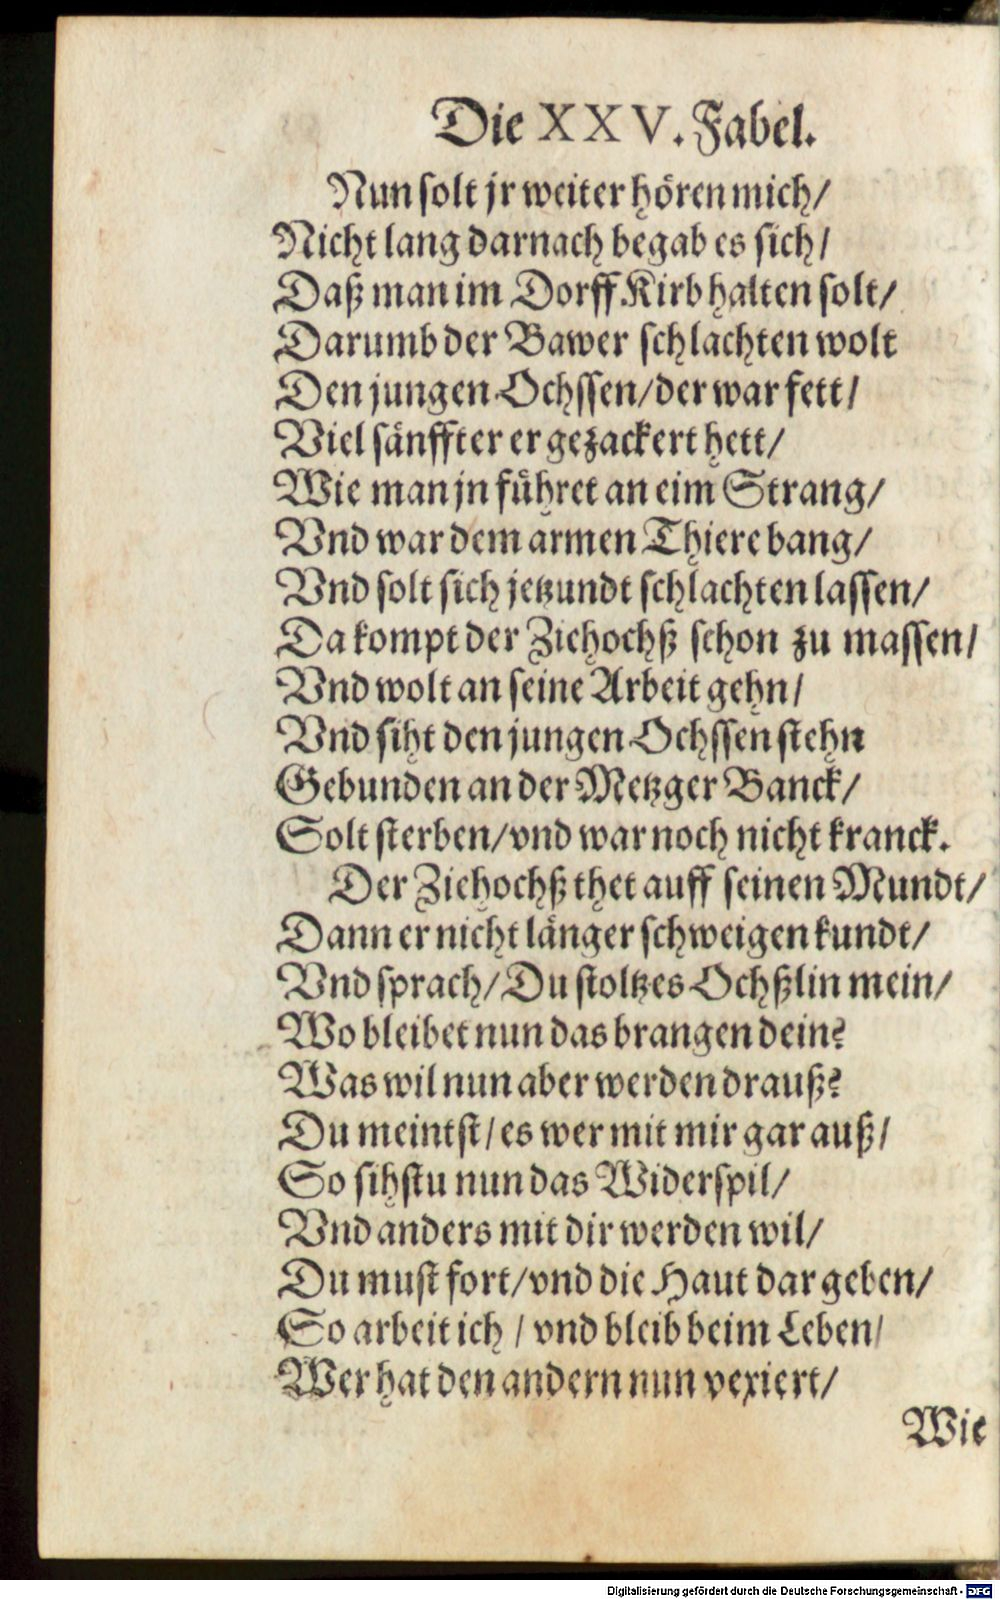 Die XXV. Fabel.
Nun solt jr weiter hören mich/
Nicht lang darnach begab es sich/
Daß man im Dorff Kirb halten solt/
Darumb der Bawer schlachten wolt
Den jungen Ochssen/der war fett/
Viel sänffter er gezackert hett/
Wie man jn führet an eim Strang/
Vnd war dem armen Thiere bang/
Vnd solt sich jetzundt schlachten lassen/
Da kompt der Ziehochß schon zu massen/
Vnd wolt an seine Arbeit gehn/
Vnd siht den jungen Ochssen stehn
Gebunden an der Metzger Banck/
Solt sterben/vnd war noch nicht kranck.
Der Ziehochß thet auff seinen Mundt/
Dann er nicht länger schweigen kundt/
Vnd sprach/Du stoltzes Ochßlin mein/
Wo bleibet nun das brangen dein?
Was wil nun aber werden drauß?
Du meintst/es wer mit mir gar auß/
So sihstu nun das Widerspil/
Vnd anders mit dir werden wil/
Du must fort/vnd die Haut dar geben/
So arbeit ich / vnd bleib beim Leben/
Wer hat den andern nun vexiert/
Wie
Digitalisierung gefördert durch die Deutsche Forschungsgemeinschaft - DFG